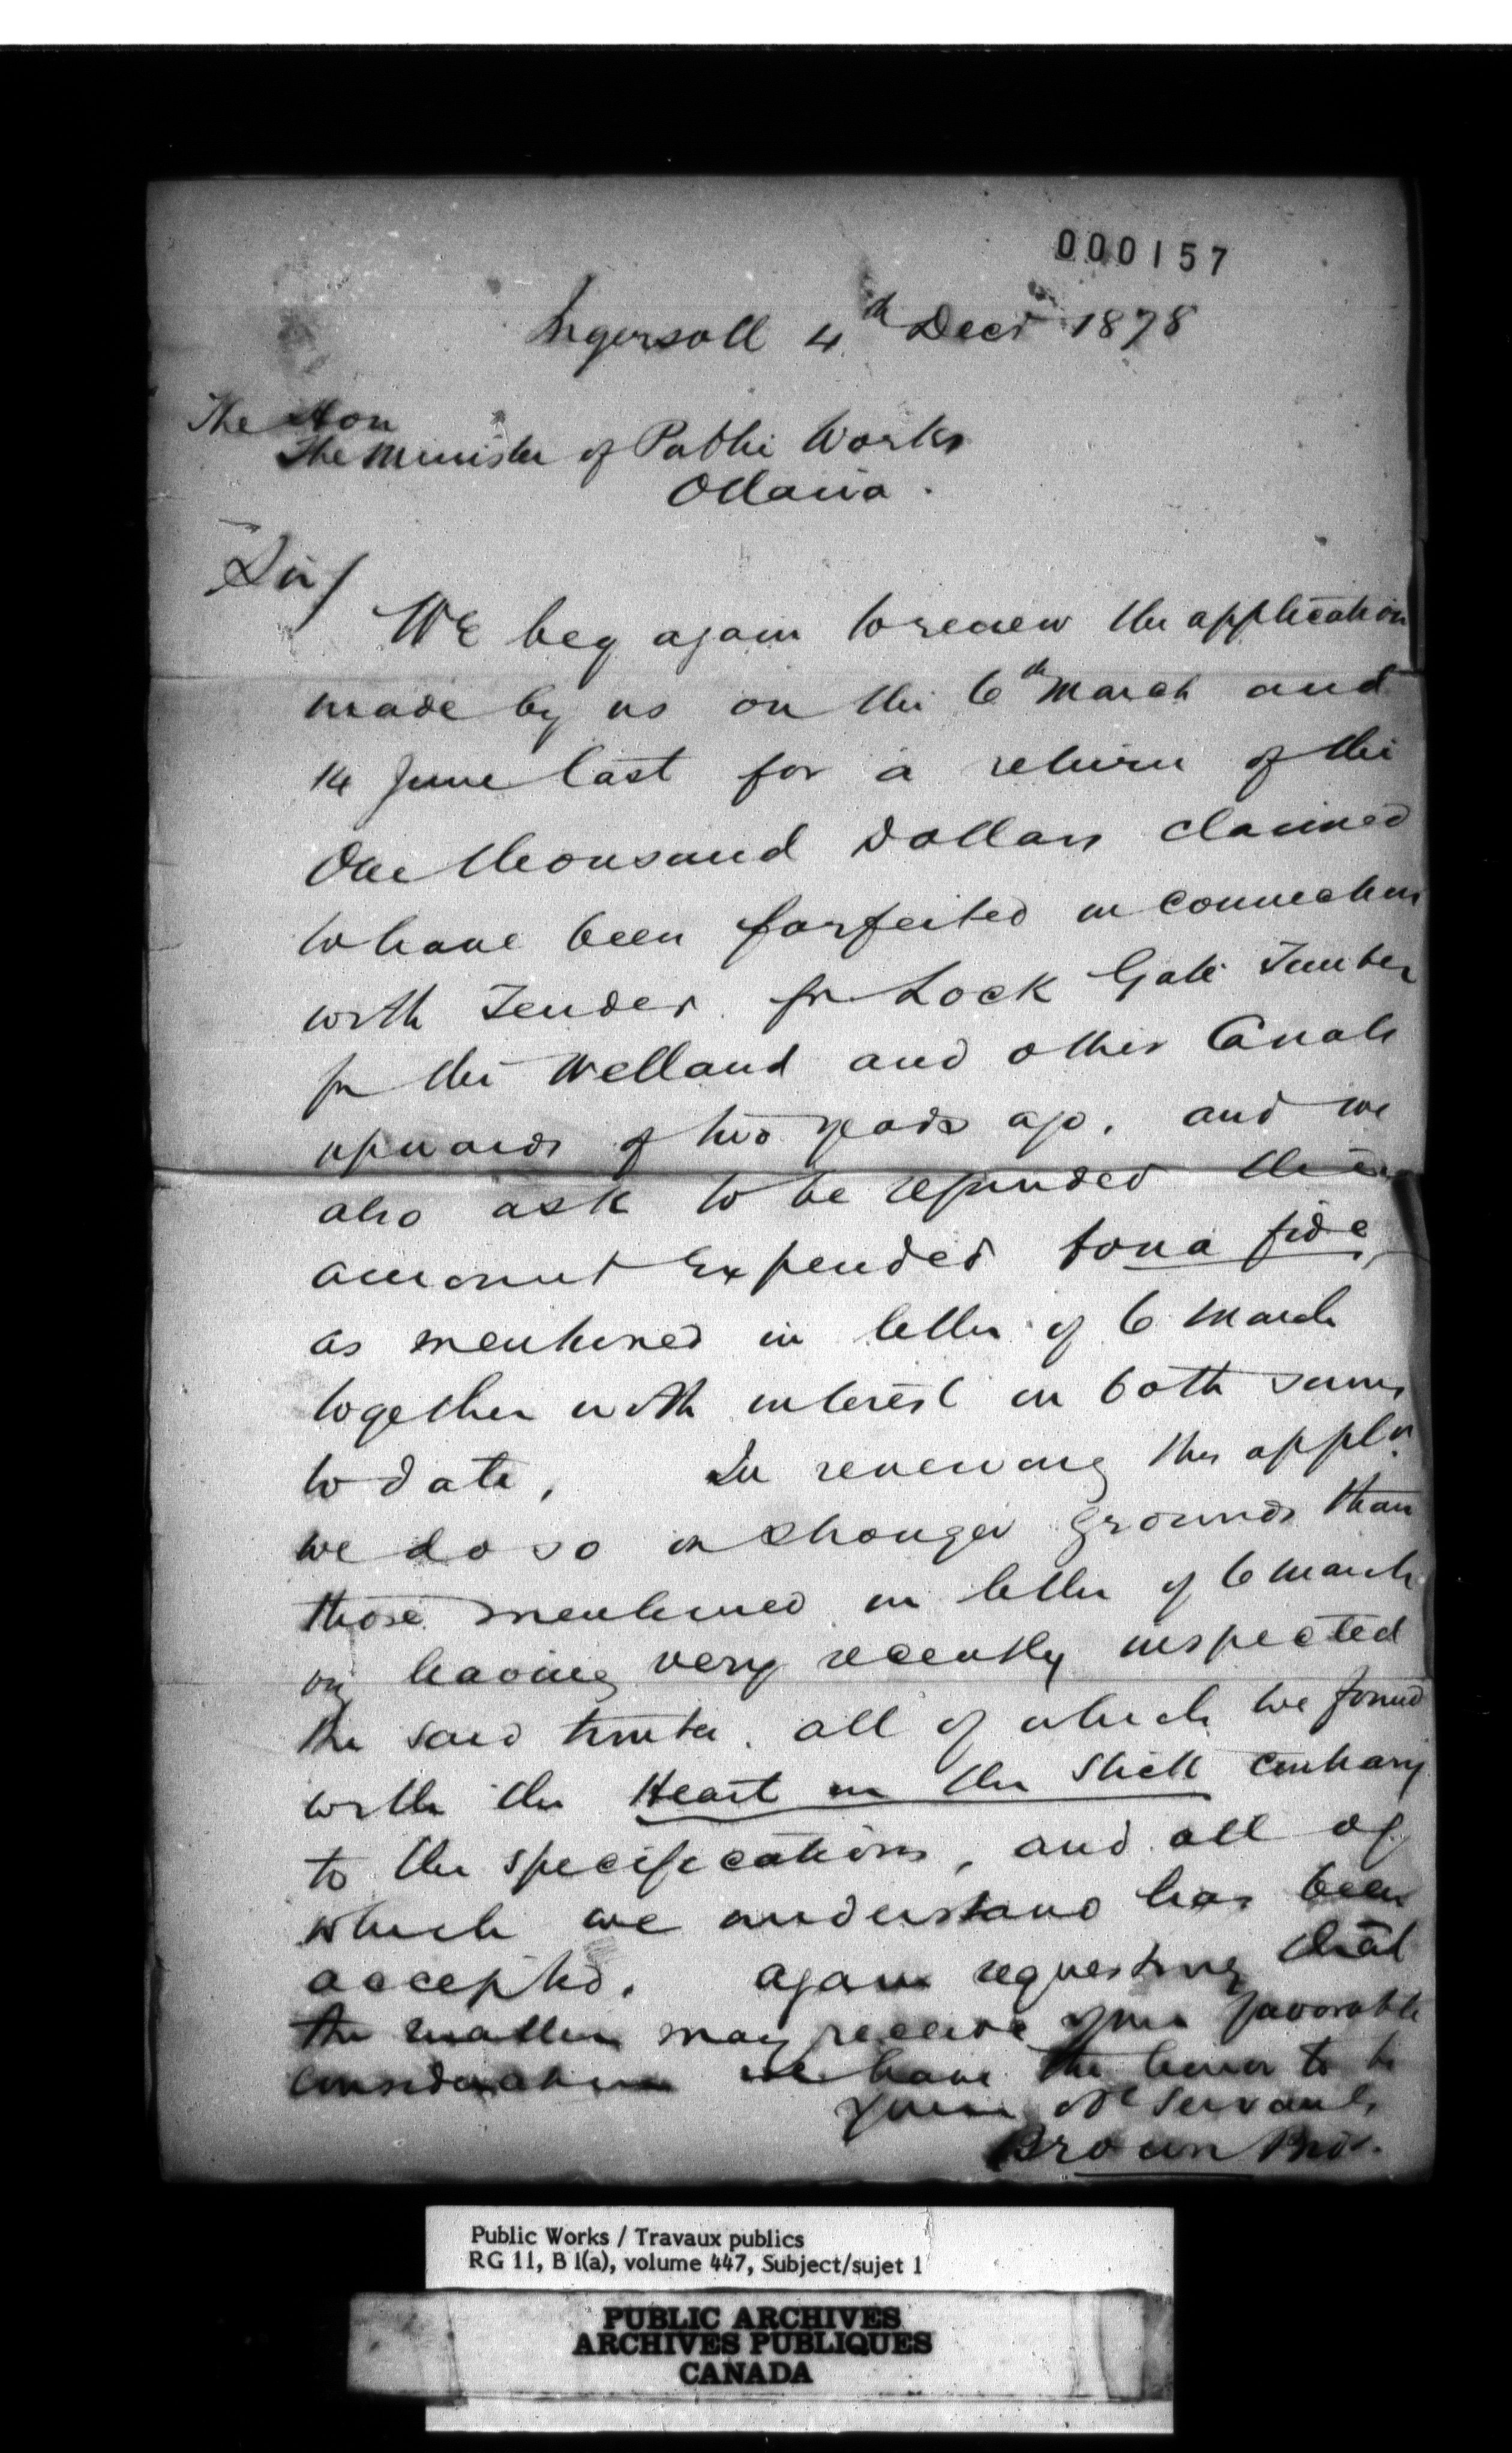 000157
Ingersoll 4th Decr 1878
The Hon
The Minister of Public Works
Ottawa.
Sir/
We beg again to renew the application
made by us on the 6th March and
14 June last for a return of the
One thousand Dollars claimed
to have been forfeited in connection
with Tender for Lock Gate Timber
for the Welland and other Canals
upwards of two years ago, and we
also ask to be refunded the
amount Expended bona fide,
as mentioned in letter of 6 March
together with interest on both sums
to date, In renewing this appln
we do so on stronger grounds than
those mentioned in letter of 6 March
on having very recently inspected
the said timber. all of which we found
with the Heart in the Stick contrary
to the specifications, and all of
which we understand has been
accepted. again requesting that
the matter may receive your favorable
consideration we have the honor to be
your Ob Servants
Brown Bros.
Public Works / Travaux publics
RG 11, B 1(a), volume 447, Subject/sujet 1
PUBLIC ARCHIVES
ARCHIVES PUBLIQUES
CANADA